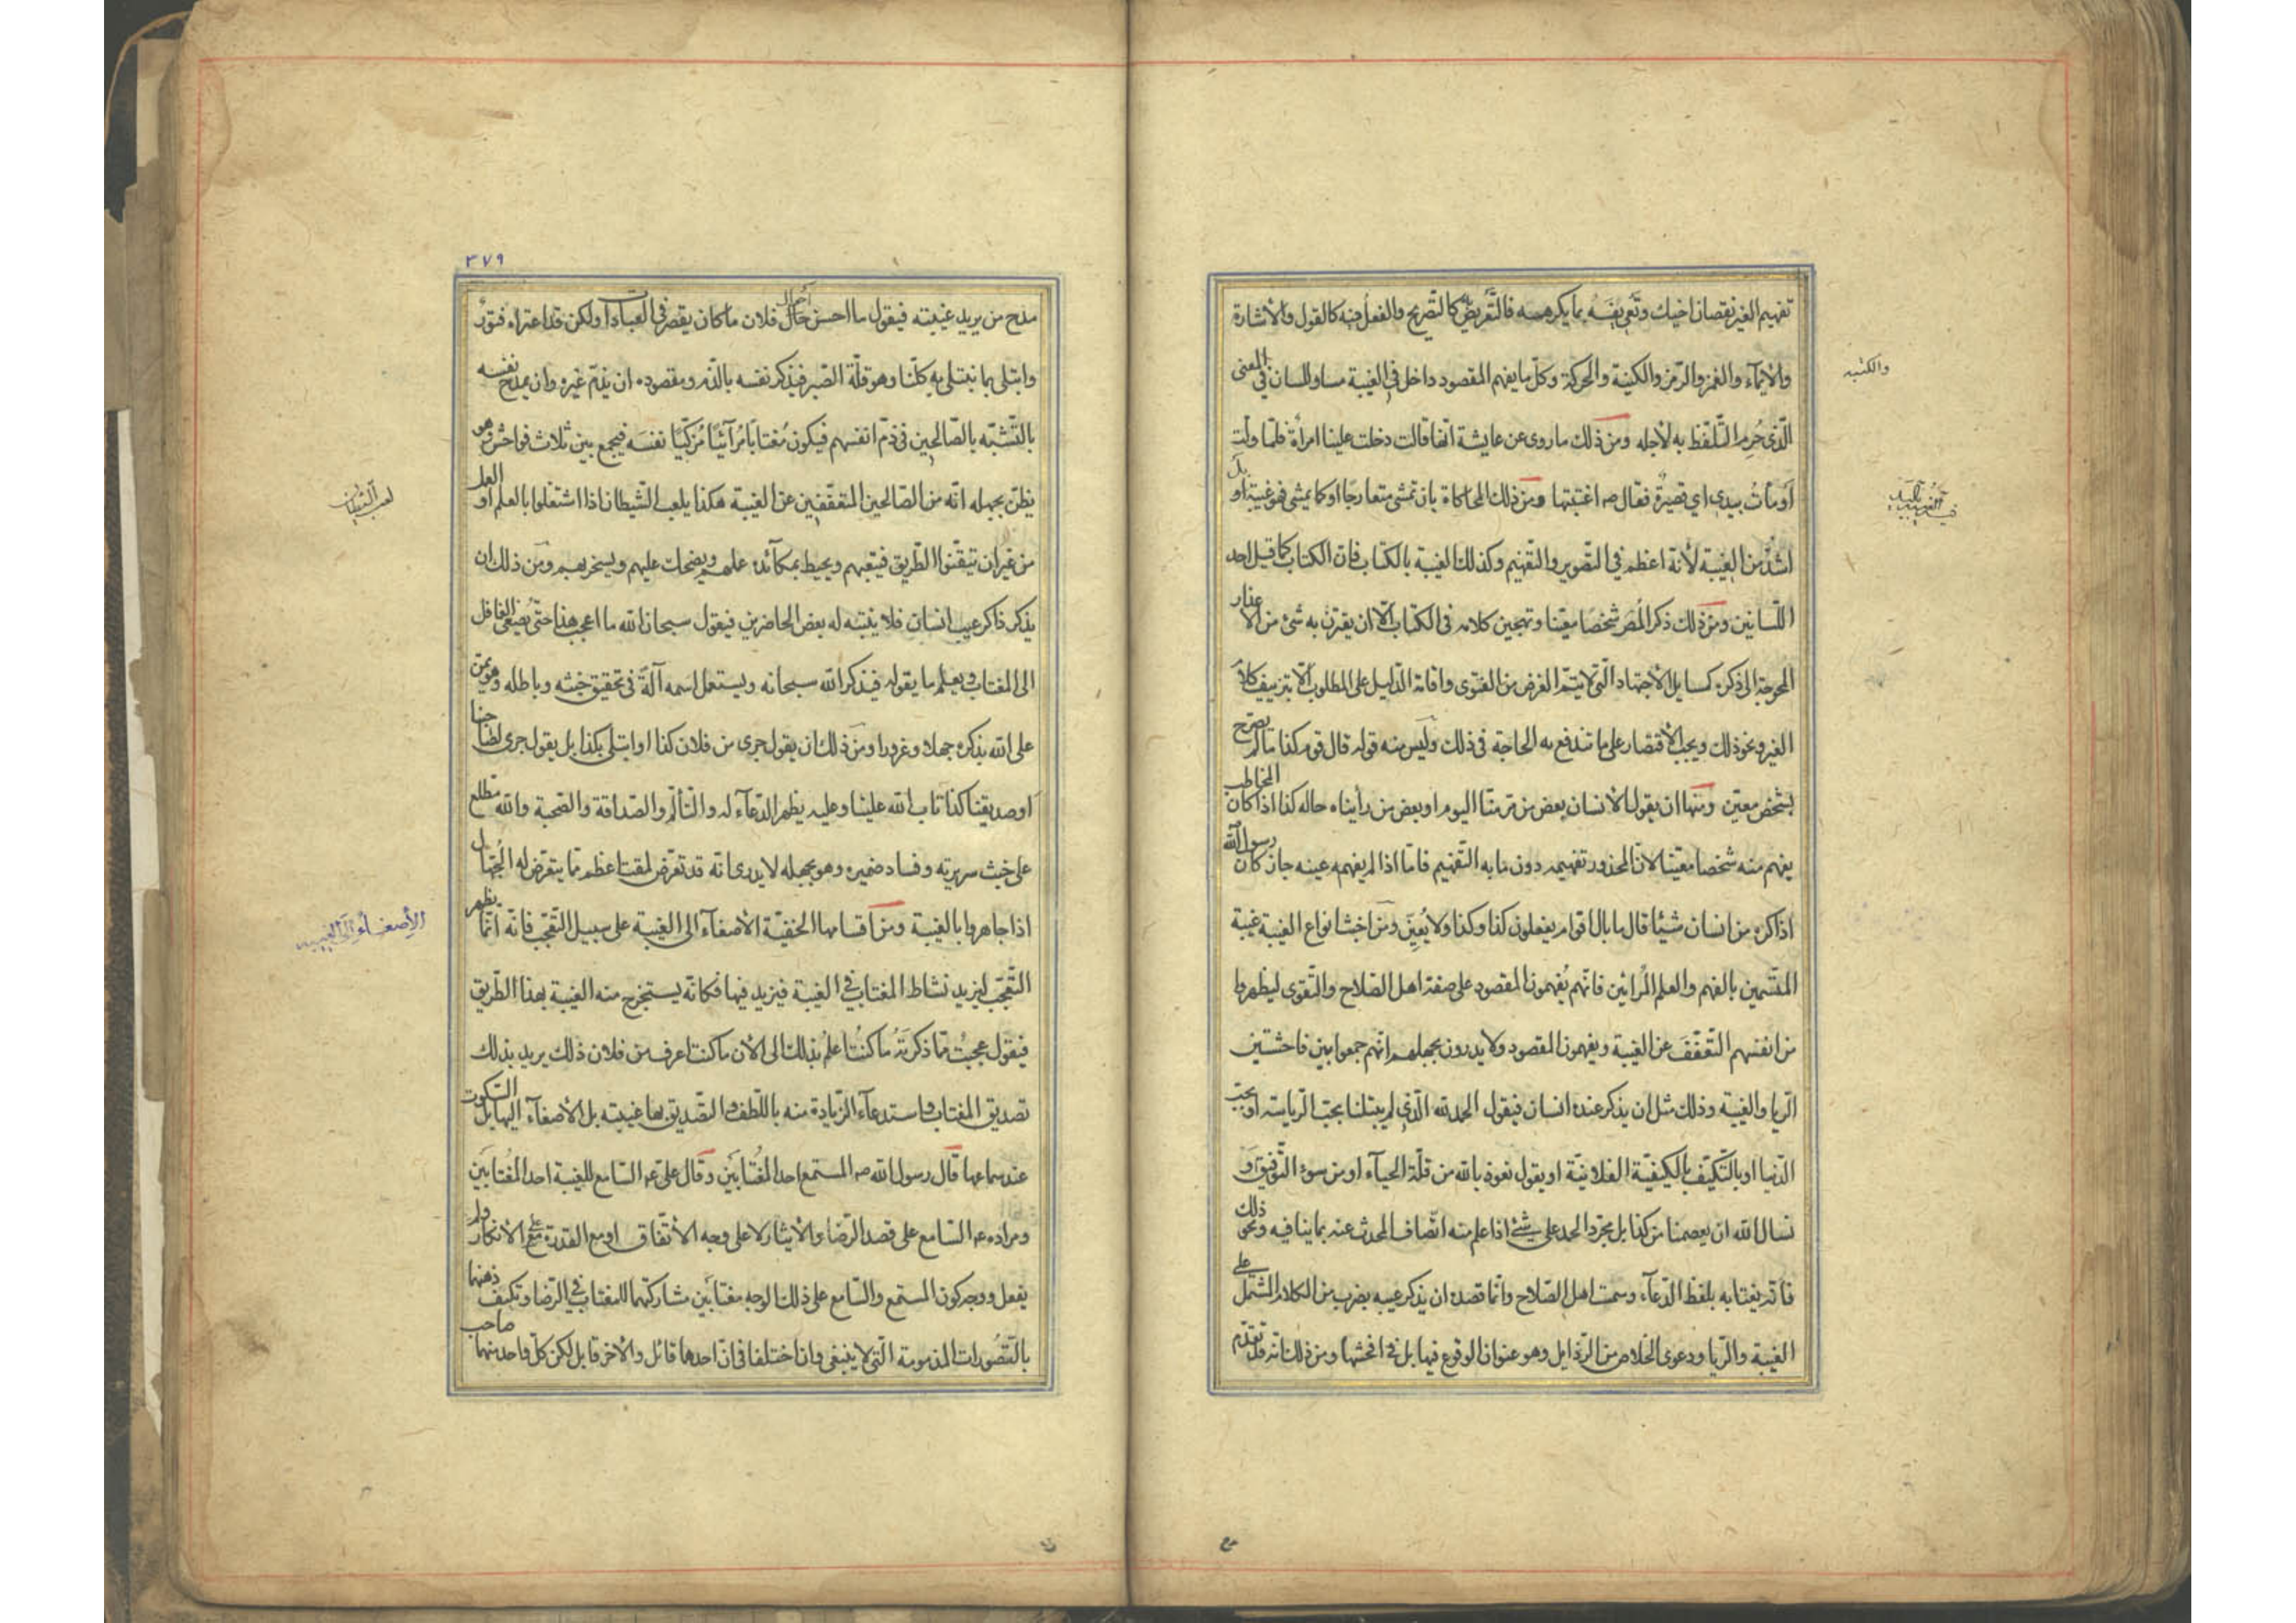 تفهيم الغير نقصان اخيك وتعريفه بما يكرهه فالتعريض به كالتصريح والفعل فيه كالقول والاشارة
والايماء والغمز والرمز والكنية والحركة وكل ما يفهم المقصود داخل في الغيبة مساو للسان في المعنى
الذي حرم التلفظ به لاجله ومن ذلك ما روى عن عايشة انها قالت دخلت علينا امرأة فلما ولت
اومأت بيدي اي قصيرة فقال ص اغتبتها ومن ذلك المحاكاة بان تمشى متعارجا او كما يمشي فهو غيبة او بل
اشد من الغيبة لانه اعظم في التصوير والتفهيم وكذلك الغيبة بالكتاب فان الكتاب كما قيل احد
اللسانين ومن ذلك ذكر المصر شخصا معينا وتهجين كلامه في الكتاب الا ان يقترن به شئ من الاعذار
المحوجة الى ذكره كمسايل الاجتهاد التي لا يتم الغرض من الفتوى واقامة الدليل على المطلوب الا بتزييف كلام
الغير ونحو ذلك ويجب الاقتصار على ما تندفع به الحاجة في ذلك وليس منه قوله قال قوم كذا ما لم يصرح
بشخص معين ومنها ان يقول الانسان بعض من مر منا اليوم او بعض من رأيناه حاله كذا اذا كان المخاطب
يفهم منه شخصا معينا لان المحذور تفهيمه دون ما به التفهيم فاما اذا لم يفهمه عينه جاز كان رسول الله
اذا كره من انسان شيئا قال ما بال اقوام يفعلون كذا وكذا ولا يعين ومن اخبث انواع الغيبة غيبة
المتسمين بالفهم والعلم المرائين فانهم يفهمون المقصود على صفة اهل الصلاح والتقوى ليظهروا
من انفسهم التعفف عن الغيبة ويفهمون المقصود ولا يدرون بجهلهم انهم جمعوا بين فاحشتين
الريا والغيبة وذلك مثل ان يذكر عنده انسان فيقول الحمد لله الذي لم يبتلنا بحب الرياسة او بحب
الدنيا او بالتكيف بالكيفية الفلانية او يقول نعوذ بالله من قلة الحياء او من سوء التوفيق او
نسال الله ان يعصمنا من كذا بل مجرد الحمد على شئ اذا علم منه اتصاف المحدث عنه بما ينافيه ونحو ذلك
فانه يغتابه بلفظ الدعاء وسمت اهل الصلاح وانما قصده ان يذكر عيبه بضرب من الكلام المشتمل على
الغيبة والريا ودعوى الخلاص من الرذايل وهو عنوان الوقوع فيها بل في افحشها ومن ذلك انه قد تقدم
والكتبه
٣٧٩
مدح من يريد غيبته فيقول ما احسن احوال فلان ما كان يقصر في العبادات ولكن قد اعتراه فتور
وابتلى بما نبتلى به كلنا وهو قلة الصبر فيذكر نفسه بالذم ومقصوده ان يذم غيره وان يمدح نفسه
بالتشبه بالصالحين في ذم انفسهم فيكون مغتابا مرآئيا مزكيا نفسه فيجمع بين ثلاث فواحش وهو
يظن بجهله انه من الصالحين المتعففين عن الغيبة هكذا يلعب الشيطان اذا اشتغلوا بالعلم او العمل
من غير ان يتيقنوا الطريق فيتعبهم ويحيط بمكآئده علمهم ويضحك عليهم ويسخر بهم ومن ذلك ان
يذكر ذاكر عيب انسان فلا ينتبه له بعض الحاضرين فيقول سبحان الله ما اعجب هذا حتى يصغى الغافل
الى المغتاب ويعلم ما يقوله فيذكر الله سبحانه ويستعمل اسمه آلة في تحقيق خبثه وباطله وهو يمن
على الله بذكره جهلا وغرورا ومن ذلك ان يقول جرى من فلان كذا او ابتلى بكذا بل يقول جرى لصاحبنا
او صديقنا كذا تاب الله علينا وعليه يظهر الدعآء له والتألم والصداقة والصحبة والله مطلع
على خبث سريرته وفساد ضميره وهو بجهله لا يدرى انه قد تعرض لمقت اعظم مما يتعرض له الجهال
اذا جاهروا بالغيبة ومن اقسامها الخفية الاصغآء الى الغيبة على سبيل التعجب فانه انما يظهر
التعجب ليزيد نشاط المغتاب في الغيبة فيزيد فيها فكانه يستخرج منه الغيبة بهذا الطريق
فيقول عجبت مما ذكرته ما كنت اعلم بذلك الى الان ما كنت اعرف من فلان ذلك يريد بذلك
تصديق المغتاب واستدعآء الزيادة منه باللطف والتصديق بها غيبة بل الاصغآء اليها بل السكوت
عند سماعها قال رسول الله ص المستمع احد المغتابين وقال على ع السامع للغيبة احد المغتابين
ومراده ع السامع على قصد الرضا والايثار لا على وجه الاتفاق او مع القدرة على الانكار ولم
يفعل ووجه كون المستمع والسامع على ذلك الوجه مغتابين مشاركتهما للمغتاب في الرضا وتكيف ذهنهما
بالتصورات المذمومة التي لا ينبغي وان اختلفا في ان احدهما قائل والاخر قابل لكن كل واحد منهما صاحب
لعب الشيطان
الاصغاء الى الغيبه